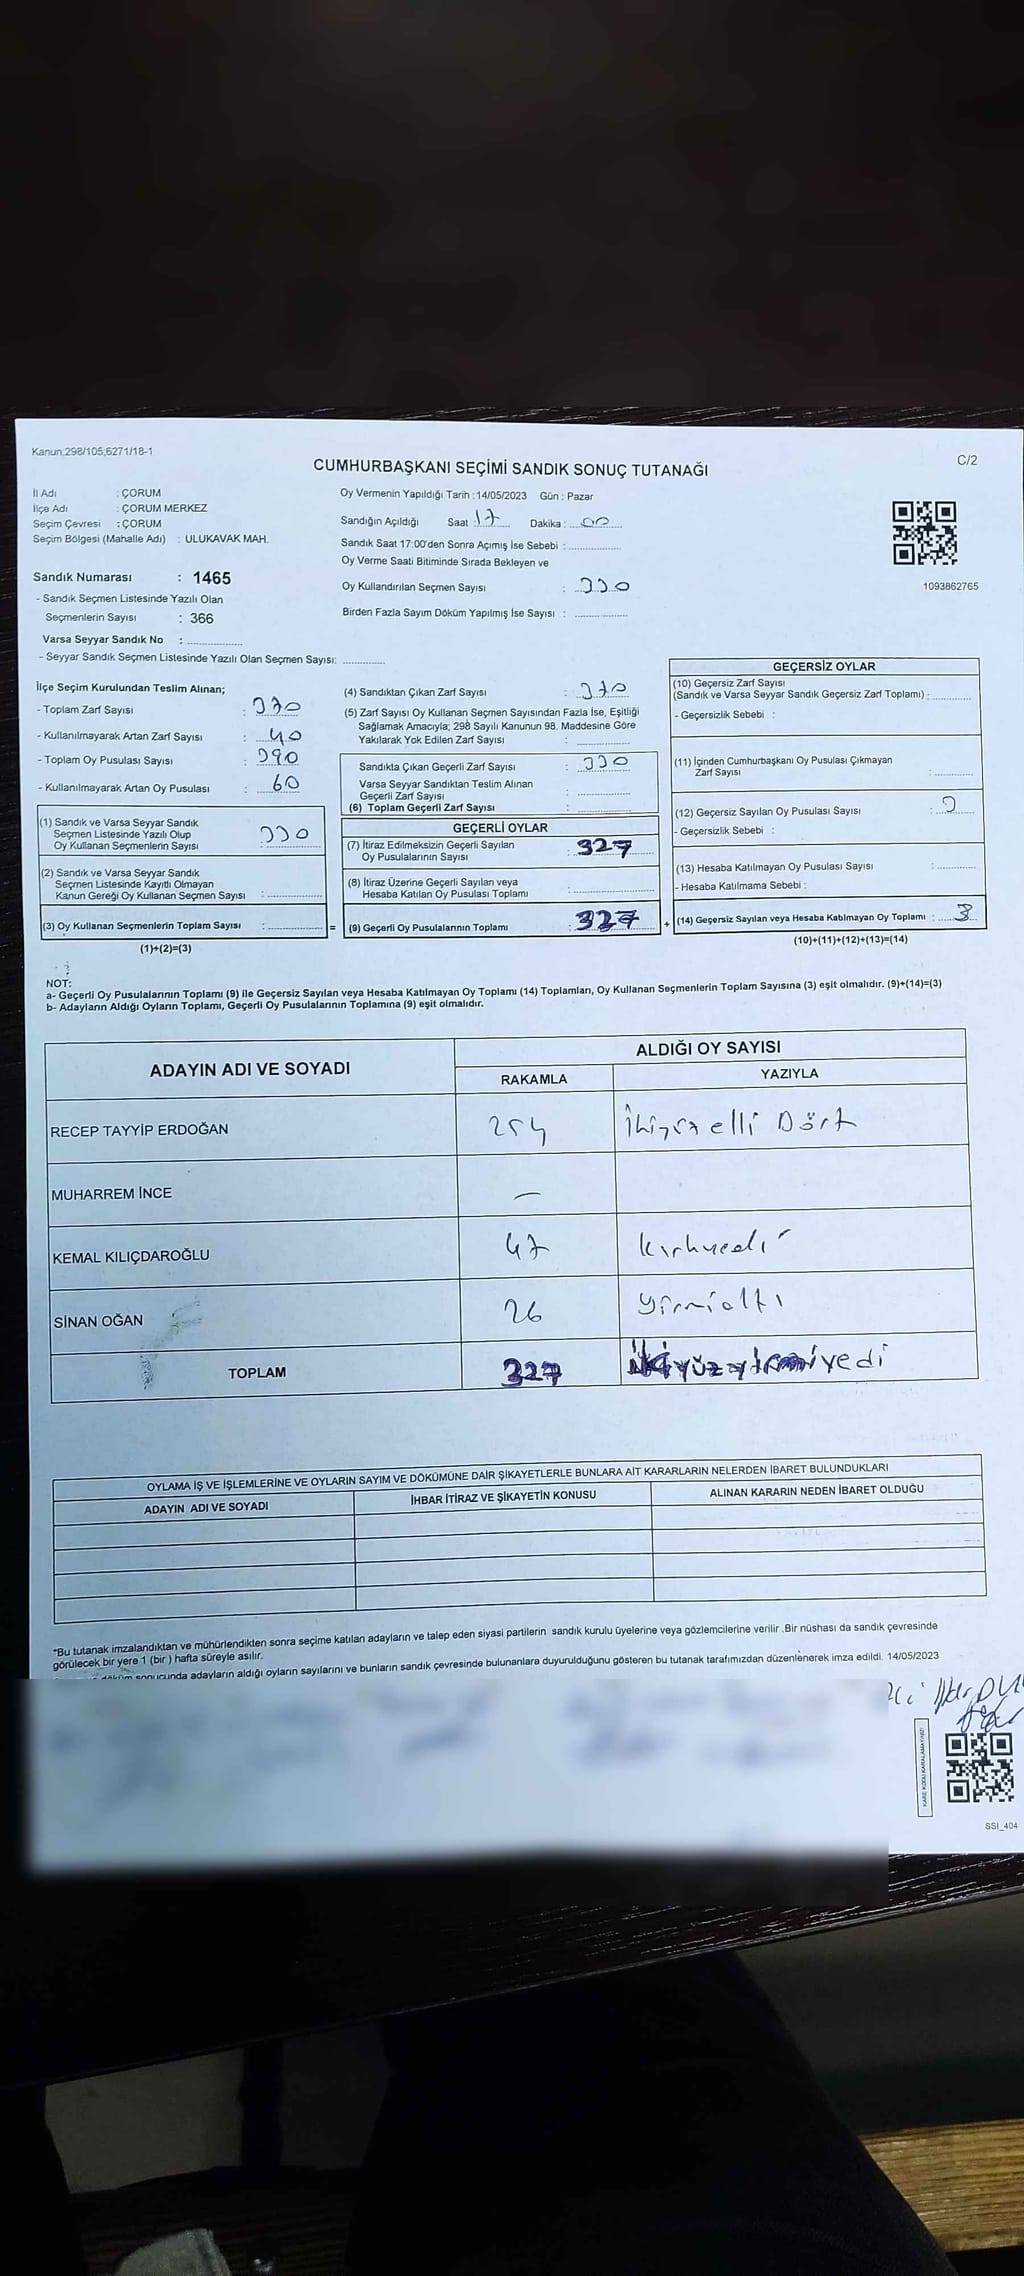 Kanun;298/105,6271/18-1
C/2
CUMHURBAŞKANI SEÇİMİ SANDIK SONUÇ TUTANAĞI
İl Adı : ÇORUM
İlçe Adı : ÇORUM MERKEZ
Seçim Çevresi : ÇORUM
Seçim Bölgesi (Mahalle Adı) : ULUKAVAK MAH.
Oy Vermenin Yapıldığı Tarih :14/05/2023 Gün : Pazar
Sandığın Açıldığı Saat : 17 Dakika : 00
Sandık Saat 17:00'den Sonra Açımış İse Sebebi :
Oy Verme Saati Bitiminde Sırada Bekleyen ve
Oy Kullandırılan Seçmen Sayısı : 330
Birden Fazla Sayım Döküm Yapılmış İse Sayısı :
1093862765
Sandık Numarası : 1465
- Sandık Seçmen Listesinde Yazılı Olan
Seçmenlerin Sayısı : 366
Varsa Seyyar Sandık No :
- Seyyar Sandık Seçmen Listesinde Yazılı Olan Seçmen Sayısı:
İlçe Seçim Kurulundan Teslim Alınan;
- Toplam Zarf Sayısı : 370
- Kullanılmayarak Artan Zarf Sayısı : 40
- Toplam Oy Pusulası Sayısı : 390
- Kullanılmayarak Artan Oy Pusulası : 60
(1) Sandık ve Varsa Seyyar Sandık
Seçmen Listesinde Yazılı Olup
Oy Kullanan Seçmenlerin Sayısı : 330
(2) Sandık ve Varsa Seyyar Sandık
Seçmen Listesinde Kayıtlı Olmayan
Kanun Gereği Oy Kullanan Seçmen Sayısı :
(3) Oy Kullanan Seçmenlerin Toplam Sayısı : =
(1)+(2)=(3)
(4) Sandıktan Çıkan Zarf Sayısı :
(5) Zarf Sayısı Oy Kullanan Seçmen Sayısından Fazla İse, Eşitliği
Sağlamak Amacıyla; 298 Sayılı Kanunun 98. Maddesine Göre
Yakılarak Yok Edilen Zarf Sayısı :
Sandıkta Çıkan Geçerli Zarf Sayısı : 330
Varsa Seyyar Sandıktan Teslim Alınan
Geçerli Zarf Sayısı :
(6) Toplam Geçerli Zarf Sayısı :
GEÇERLİ OYLAR
(7) İtiraz Edilmeksizin Geçerli Sayılan
Oy Pusulalarının Sayısı : 327
(8) İtiraz Üzerine Geçerli Sayılan veya
Hesaba Katılan Oy Pusulası Toplamı :
(9) Geçerli Oy Pusulalarının Toplamı : 327 +
GEÇERSİZ OYLAR
(10) Geçersiz Zarf Sayısı
(Sandık ve Varsa Seyyar Sandık Geçersiz Zarf Toplamı) :
- Geçersizlik Sebebi :
(11) İçinden Cumhurbaşkanı Oy Pusulası Çıkmayan
Zarf Sayısı :
(12) Geçersiz Sayılan Oy Pusulası Sayısı : 3
- Geçersizlik Sebebi :
(13) Hesaba Katılmayan Oy Pusulası Sayısı :
- Hesaba Katılmama Sebebi :
(14) Geçersiz Sayılan veya Hesaba Katılmayan Oy Toplamı : 3
(10)+(11)+(12)+(13)=(14)
NOT:
a- Geçerli Oy Pusulalarının Toplamı (9) ile Geçersiz Sayılan veya Hesaba Katılmayan Oy Toplamı (14) Toplamları, Oy Kullanan Seçmenlerin Toplam Sayısına (3) eşit olmalıdır. (9)+(14)=(3)
b- Adayların Aldığı Oyların Toplamı, Geçerli Oy Pusulalarının Toplamına (9) eşit olmalıdır.
ADAYIN ADI VE SOYADI ALDIĞI OY SAYISI
RAKAMLA YAZIYLA
RECEP TAYYİP ERDOĞAN 254 İkiyüz elli Dört
MUHARREM İNCE —
KEMAL KILIÇDAROĞLU 47 Kırkyedi
SİNAN OĞAN 26 Yirmialtı
TOPLAM 327 yüzyirmiyedi
OYLAMA İŞ VE İŞLEMLERİNE VE OYLARIN SAYIM VE DÖKÜMÜNE DAİR ŞİKAYETLERLE BUNLARA AİT KARARLARIN NELERDEN İBARET BULUNDUKLARI
ADAYIN ADI VE SOYADI İHBAR İTİRAZ VE ŞİKAYETİN KONUSU ALINAN KARARIN NEDEN İBARET OLDUĞU
*Bu tutanak imzalandıktan ve mühürlendikten sonra seçime katılan adayların ve talep eden siyasi partilerin sandık kurulu üyelerine veya gözlemcilerine verilir .Bir nüshası da sandık çevresinde
görülecek bir yere 1 (bir ) hafta süreyle asılır.
döküm sonucunda adayların aldığı oyların sayılarını ve bunların sandık çevresinde bulunanlara duyurulduğunu gösteren bu tutanak tarafımızdan düzenlenerek imza edildi. 14/05/2023
KARE KODU KARALAMAYINIZ!
SSI_404